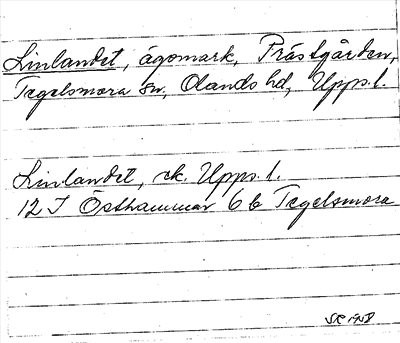 Linlandet, ägomark, Prästgården,
Tegelsmora sn, Olands hd, Upps. l.
Linlandet, ek. Upps. l.
12 I Östhammar 6 b Tegelsmora